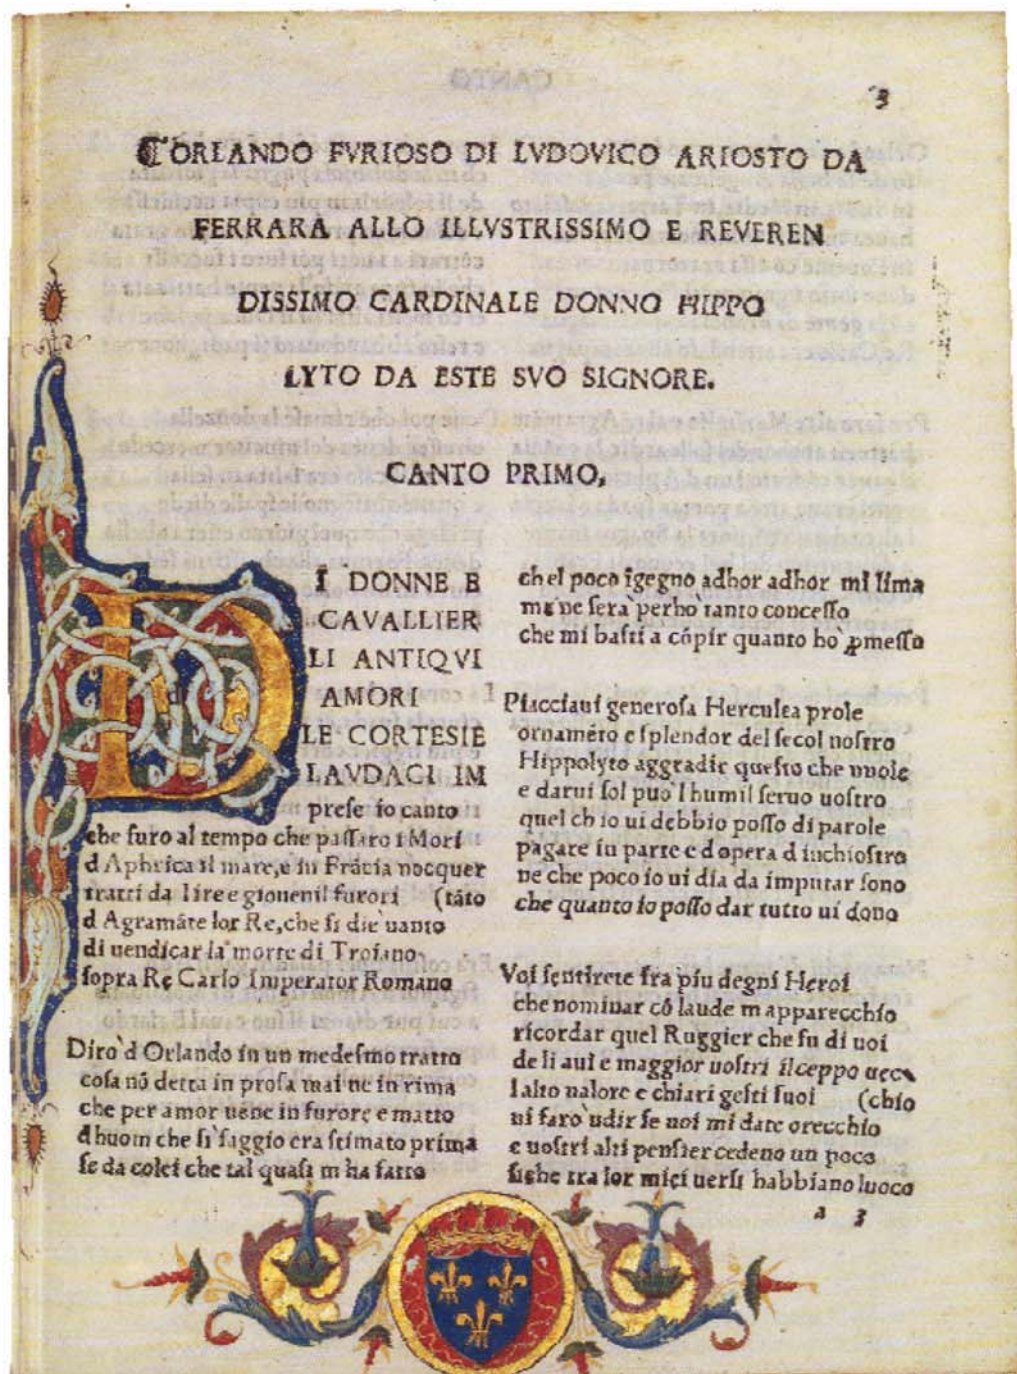 3
ORLANDO FVRIOSO DI LVDOVICO ARIOSTO DA
FERRARA ALLO ILLVSTRISSIMO E REVEREN
DISSIMO CARDINALE DONNO HIPPO
LYTO DA ESTE SVO SIGNORE.
CANTO PRIMO,
DI DONNE E
CAVALLIER
LI ANTIQVI
AMORI
LE CORTESIE
LAVDACI IM
prese io canto
che furo al tempo che paſſaro i Mori
d Aphrica il mare, e in Frácia nocquer
tratti da lire e giouenil furori (táto
d Agramáte lor Re, che ſi die uanto
di uendicar la morte di Troiano
ſopra Re Carlo Imperator Romano
Diro d Orlando in un medeſmo tratto
coſa nó detta in proſa mai ne in rima
che per amor uéne in furore e matto
d huom che ſi ſaggio era ſtimato prima
ſe da colei che tal quaſi m ha fatto
chel poco ĩgegno adhor adhor mi lima
me ne ſera perho tanto conceſſo
che mi baſti a cópir quanto ho ꝓmeſſo
Piacciaui generoſa Herculea prole
ornaméto e ſplendor del ſecol noſtro
Hippolyto aggradir queſto che uuole
e darui ſol puo l humil ſeruo uoſtro
quel ch io ui debbio poſſo di parole
pagare in parte e d opera d inchioſtro
ne che poco io ui dia da imputar ſono
che quanto io poſſo dar tutto ui dono
Voi ſentirete fra piu degni Heroi
che nominar có laude m apparecchio
ricordar quel Ruggier che fu di uoi
de li aui e maggior uoſtri il ceppo uec
lalto ualore e chiari geſti ſuoi (chio
ui faro udir ſe uoi mi date orecchio
e uoſtri alti penſier cedeno un poco
ſiche tra lor miei uerſi habbiano luoco
a 3